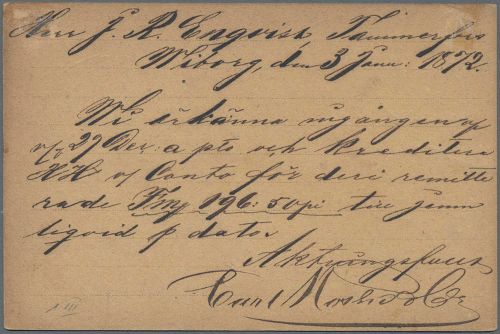 Herr J. R. Enqvist, Tammerfors
Wiborg, den 3 Janu: 1872.
Wi erkänna ingången af
v/v 29 Dez: a pto och kreditera
HH v/ Conto för deri remitte
rade Fmj 196: 50 pi till jemn
liqvid p dato
Aktningsfullt
Carl & Co